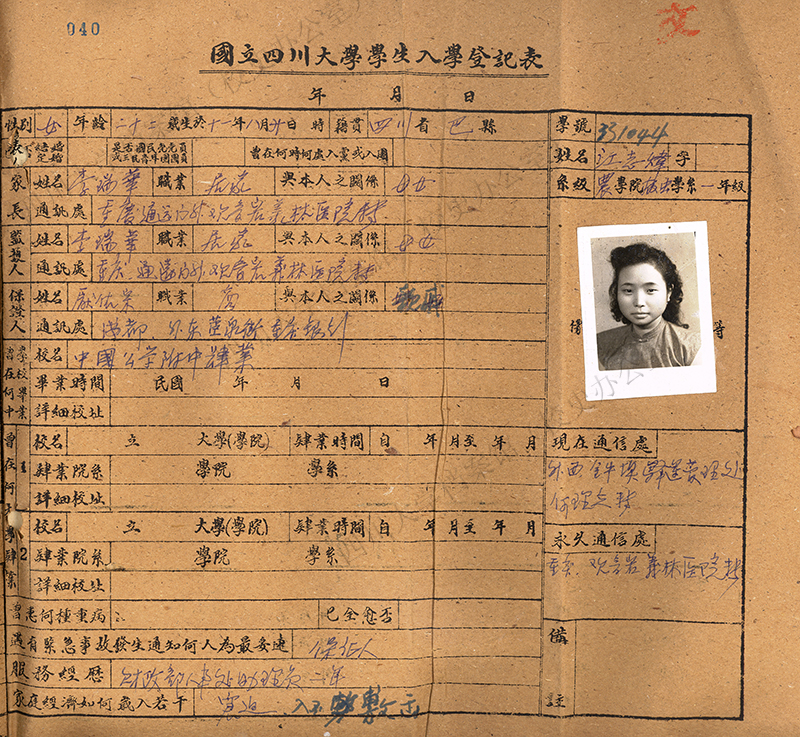 040
國立四川大學學生入學登記表
年 月 日
性別 女 年齡 二十二 歲生於 十一年八月廿日 時 籍貫 四川省 巴縣
是否國民黨黨員或三民主義青年團團員 曾在何時何處入黨或入團
家長 姓名 李瑞華 職業 居家 與本人之關係 母女
通訊處 重慶通遠門外观音岩義林医院转
監護人 姓名 李瑞華 職業 居家 與本人之關係 母女
通訊處 重慶通遠門外观音岩義林医院转
保證人 姓名 職業 與本人之關係
通訊處 成都 外东
校名 中國公学附中肄業
畢業時間 民國 年 月 日
詳細校址
曾在何大學肄業
1 校名 立 大學(學院) 肄業時間 自 年 月至 年 月
肄業院系 學院 學系
詳細校址
2 校名 立 大學(學院) 肄業時間 自 年 月至 年 月
肄業院系 學院 學系
詳細校址
曾患何種重病 已全愈否
遇有緊急事故發生通知何人為最妥速 保証人
服務經歷 財政部人事处助理員二年
家庭經濟如何歲入若干 窘迫 入不敷出
學號 331044
姓名 江志煒 字
系級 農學院植物學系一年級
現在通信處
外西
何理立转
永久通信處
重慶观音岩義林医院转
備註